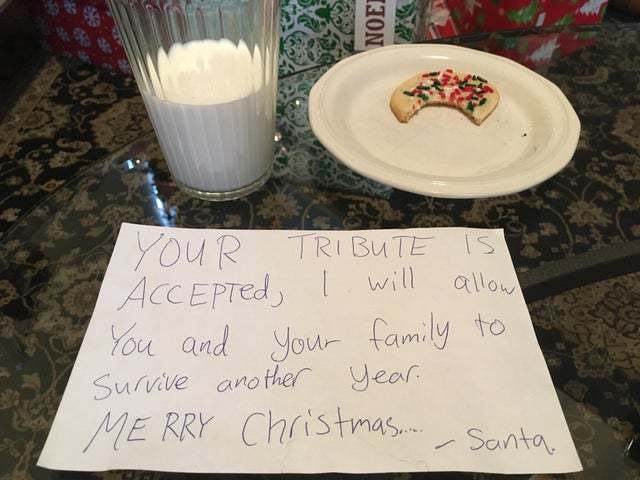 NOEL
YOUR TRIBUTE IS
ACCEPTed, I will allow
You and your family to
Survive another year.
MERRY Christmas.....
- Santa.